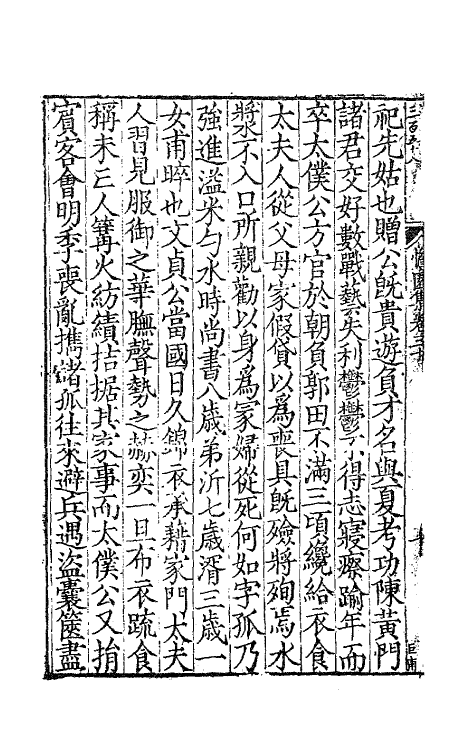 祀先姑也贈公旣貴遊負才名與夏考功陳黃門
諸君交好數戰藝失利鬱鬱不得志寢瘵踰年而
卒太僕公方官於朝負郭田不滿三頃纔給衣食
太夫人從父母家假貸以爲喪具旣殮將殉焉水
漿不入口所親勸以身爲冢婦從死何如字孤乃
強進溢米勺水時尚書八歲弟沂七歲湑三歲一
女甫晬也文貞公當國日久錦衣承藉家門太夫
人習見服御之華膴聲勢之赫奕一旦布衣疏食
稱未亡人篝火紡績拮据其家事而太僕公又捐
賓客會明季喪亂攜諸孤往來避兵遇盜囊篋盡